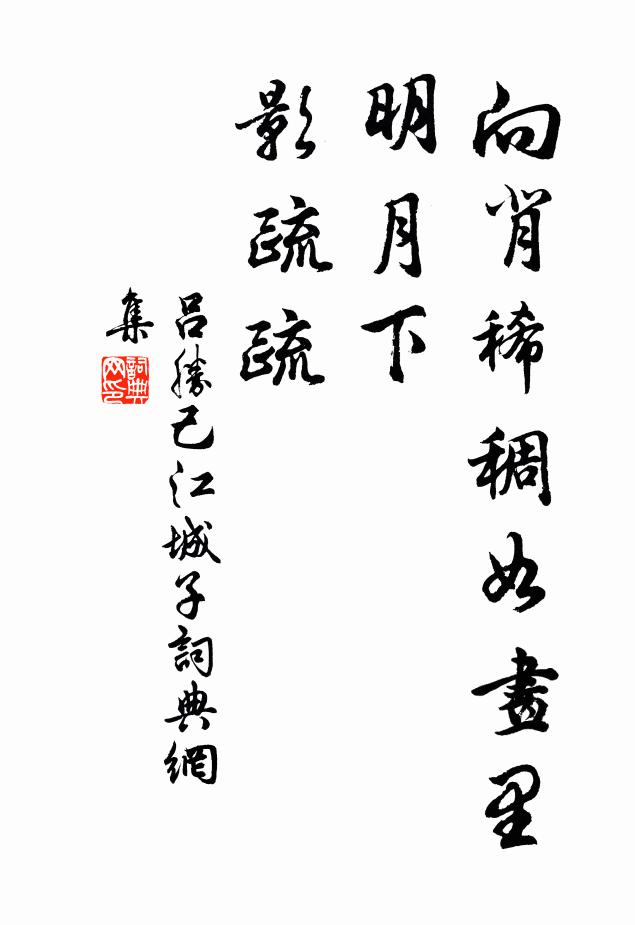 向背稀稠如畫里
明月下
影疏疏
呂勝己江城子詞典網
集
詞典
网印